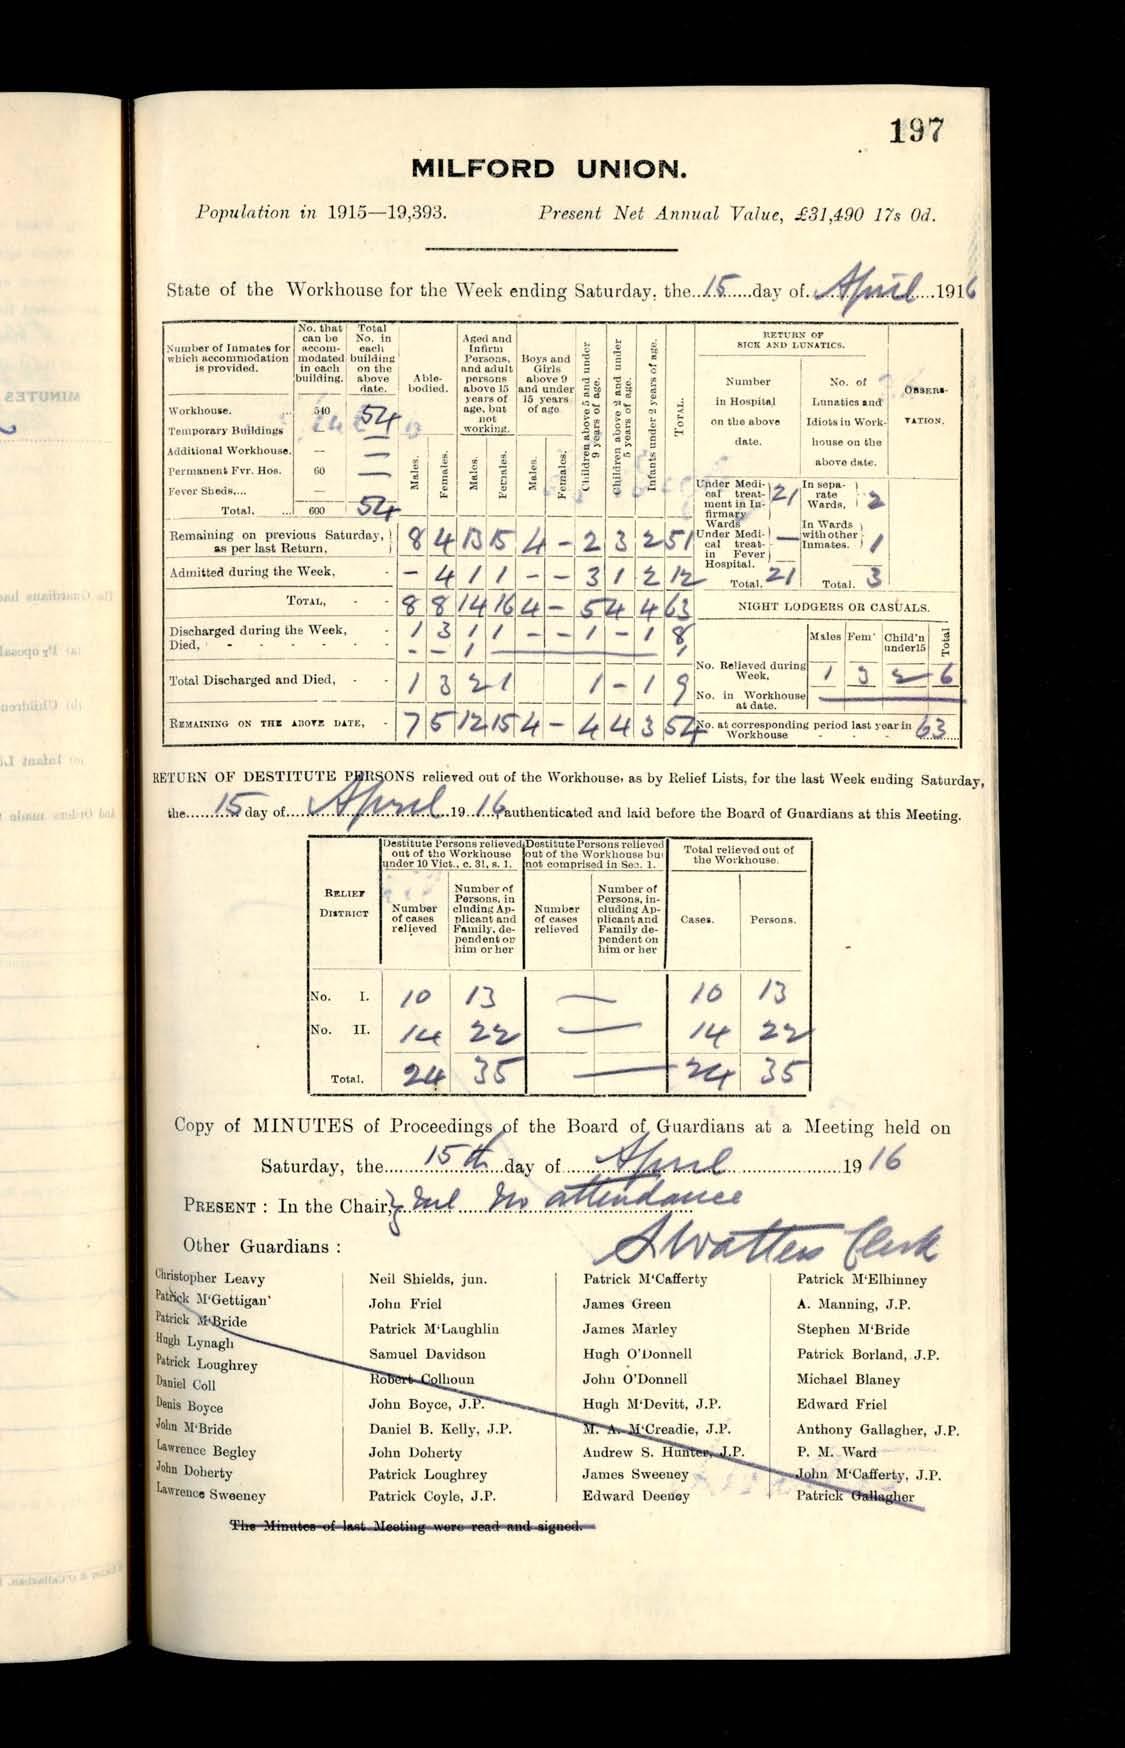 197
MILFORD UNION.
Population in 1915—19,393. Present Net Annual Value, £31,490 17s 0d.
State of the Workhouse for the Week ending Saturday, the 15 day of April 1916
Number of Inmates for which accommodation is provided. No. that can be accommodated in each building. Total No. in each building on the above date.
Workhouse. 540 54
Temporary Buildings —
Additional Workhouse. — —
Permanent Fvr. Hos. 60 —
Fever Sheds,... —
Total, ... 600 54
Able-bodied. Males. Females.
Aged and Infirm Persons, and adult persons above 15 years of age, but not working. Males. Females.
Boys and Girls above 9 and under 15 years of age. Males. Females.
Children above 5 and under 9 years of age.
Children above 2 and under 5 years of age.
Infants under 2 years of age.
TOTAL.
Remaining on previous Saturday, as per last Return, 8 4 13 15 4 - 2 3 2 51
Admitted during the Week, - - 4 1 1 - - 3 1 2 12
TOTAL, - - 8 8 14 16 4 - 5 4 4 63
Discharged during the Week, - 1 3 1 1 - - 1 - 1 8
Died, - - - - - - - - 1 — 1
Total Discharged and Died, - - 1 3 2 1 1 - 1 9
REMAINING ON THE ABOVE DATE, - 7 5 12 15 4 - 4 4 3 54
RETURN OF SICK AND LUNATICS.
Number in Hospital on the above date.
No. of Lunatics and Idiots in Workhouse on the above date.
OBSERVATION.
Under Medical treatment in Infirmary Wards 21
Under Medical treat- in Fever Hospital. —
Total, 21
In separate Wards, 2
In Wards with other Inmates. 1
Total. 3
NIGHT LODGERS OR CASUALS.
Males Fem' Child'n under 15 Total
No. Relieved during Week, 1 3 2 6
No. in Workhouse at date. —
No. at corresponding period last year in Workhouse - - - 63
RETURN OF DESTITUTE PERSONS relieved out of the Workhouse, as by Relief Lists, for the last Week ending Saturday,
the 15 day of April 19 16 authenticated and laid before the Board of Guardians at this Meeting.
RELIEF DISTRICT
Destitute Persons relieved out of the Workhouse under 10 Vict., c. 31, s. 1.
Destitute Persons relieved out of the Workhouse but not comprised in Sec. 1.
Total relieved out of the Workhouse.
Number of cases relieved
Number of Persons, including Applicant and Family, dependent on him or her
Number of cases relieved
Number of Persons, including Applicant and Family dependent on him or her
Cases. Persons.
No. I. 10 13 — 10 13
No. II. 14 22 — 14 22
Total. 24 35 — 24 35
Copy of MINUTES of Proceedings of the Board of Guardians at a Meeting held on
Saturday, the 15th day of April 19 16
PRESENT : In the Chair, Nil No attendance
S Watters Clerk
Other Guardians :
Christopher Leavy
Patrick M'Gettigan
Patrick M'Bride
Hugh Lynagh
Patrick Loughrey
Daniel Coll
Denis Boyce
John M'Bride
Lawrence Begley
John Doherty
Lawrence Sweeney
Neil Shields, jun.
John Friel
Patrick M'Laughlin
Samuel Davidson
Robert Colhoun
John Boyce, J.P.
Daniel B. Kelly, J.P.
John Doherty
Patrick Loughrey
Patrick Coyle, J.P.
Patrick M'Cafferty
James Green
James Marley
Hugh O'Donnell
John O'Donnell
Hugh M'Devitt, J.P.
M. A. M'Creadie, J.P.
Andrew S. Hunter, J.P.
James Sweeney
Edward Deeney
Patrick M'Elhinney
A. Manning, J.P.
Stephen M'Bride
Patrick Borland, J.P.
Michael Blaney
Edward Friel
Anthony Gallagher, J.P.
P. M. Ward
John M'Cafferty, J.P.
Patrick Gallagher
The Minutes of last Meeting were read and signed.